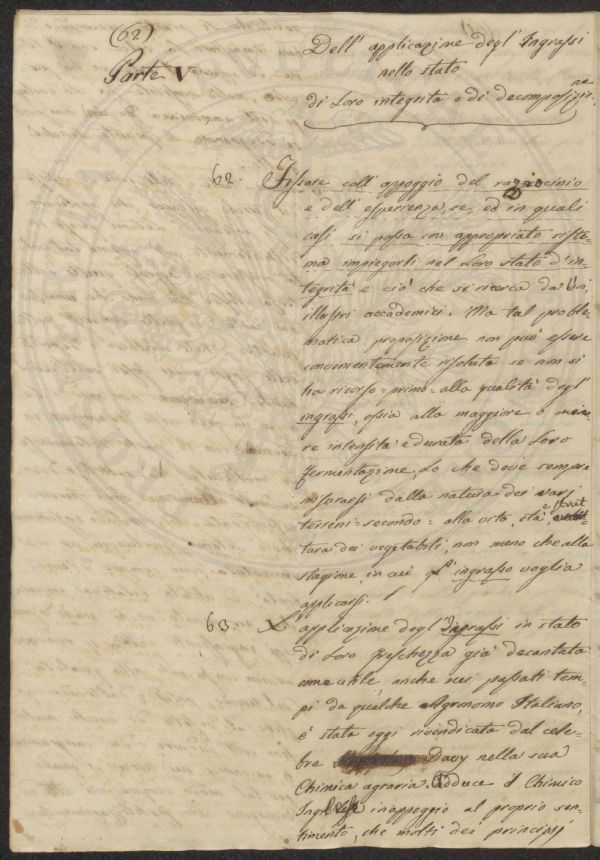 (62)
Parte V
Dell' applicazione degl' Ingrassi
nello stato
di Loro integrità e di decomposizione.
62. Fissare coll' appoggio del raziocinio
e dell' esperienza, se, ed in quali
casi si possa con appropriato siste-
ma impiegarli nel Loro stato d'in-
tegrità e ciò che si ricerca da Voi
illustri accademici. Ma tal proble-
matica proposizione non può essere
convenientemente risoluta se non si
ha ricorso = primo = alla qualità degl'
ingrassi, ossia alla maggiore o mino-
re intensità e durata della Loro
fermentazione, Lo che deve sempre
misurarsi dalla natura dei varj
terreni = secondo = alla vita, età, e strut
tura dei vegetabili, non meno che alla
stagione, in cui l' ingrasso voglia
applicarsi.
63. L' applicazione degl' Ingrassi in stato
di Loro freschezza già decantata
come utile anche nei passati tem-
pi da qualche Agronomo Italiano,
è stata oggi rivendicata dal cele-
bre Davy nella sua
Chimica agraria. Adduce il Chimico
Inglese in appoggio al proprio sen-
timento, che molti dei principj